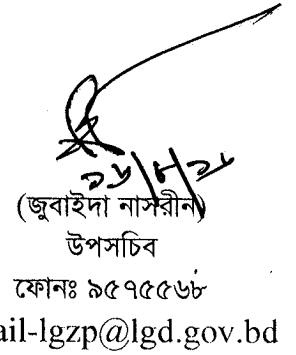 (জুবাইদা নাসরীন)
উপসচিব
ফোনঃ ৯৫৭৫৫৬৮
ail-lgzp@lgd.gov.bd